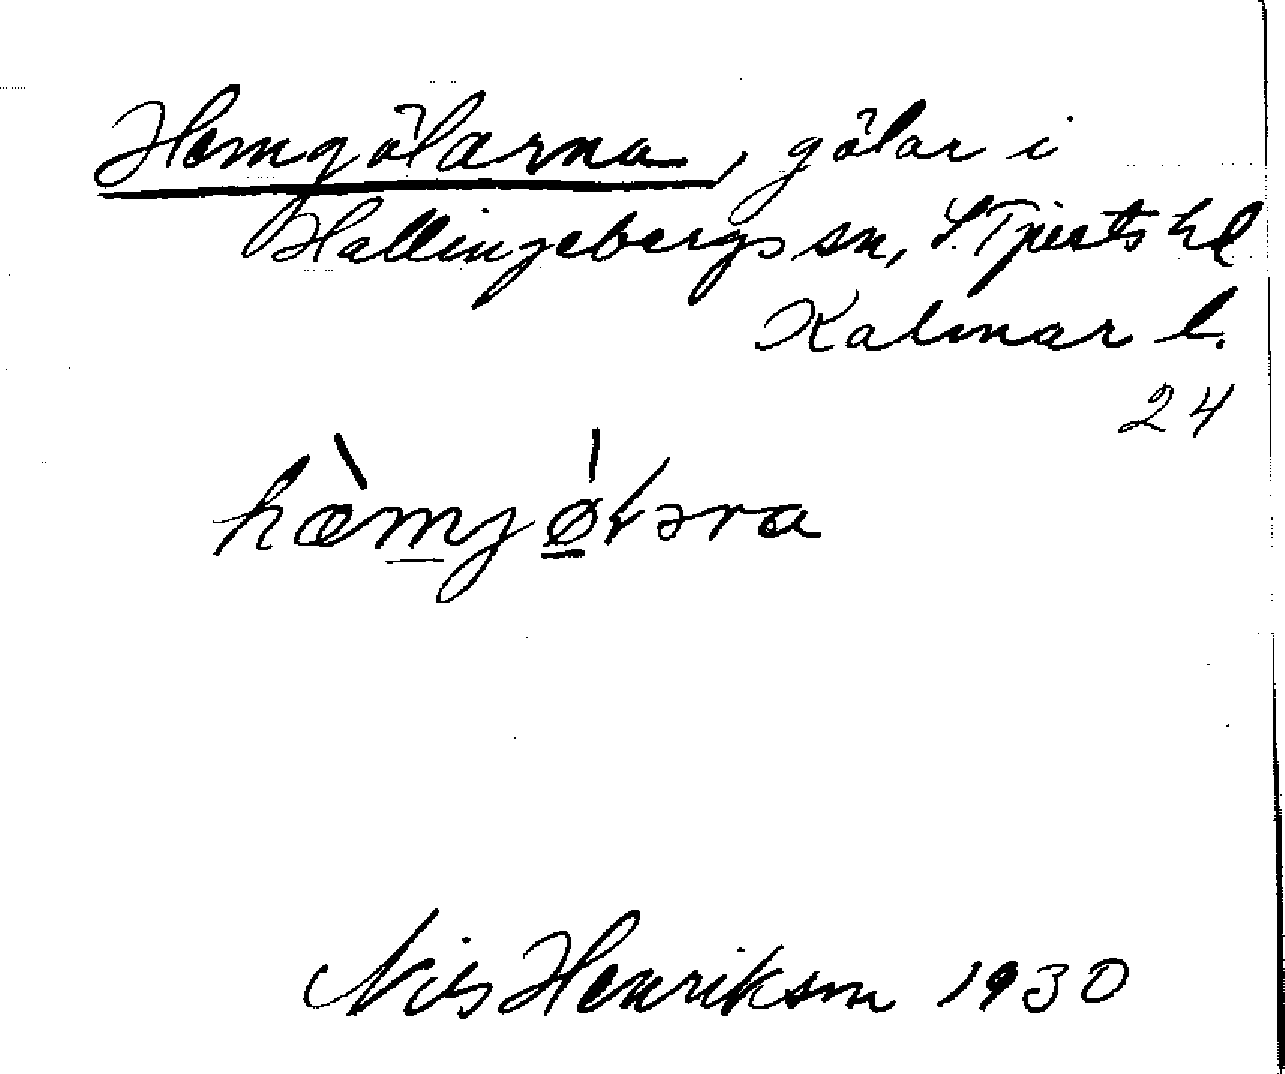 Hemgölarna, gölar i
Hallingebergs sn, S. Tjusts hd
Kalmar l.
24
hæ̀mjø̀lərа
Nils Henrikson 1930